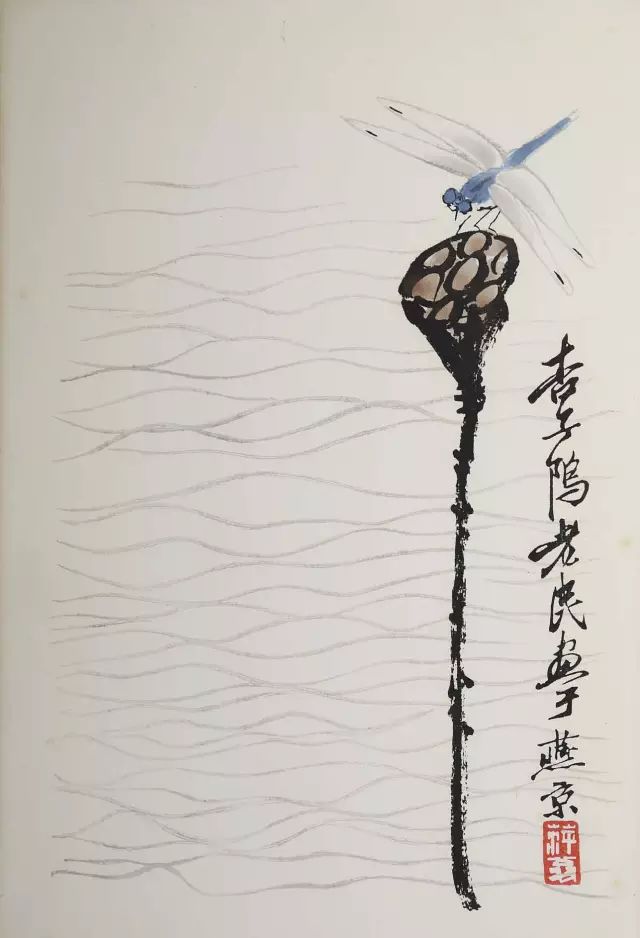 杏子隖老民画于燕京